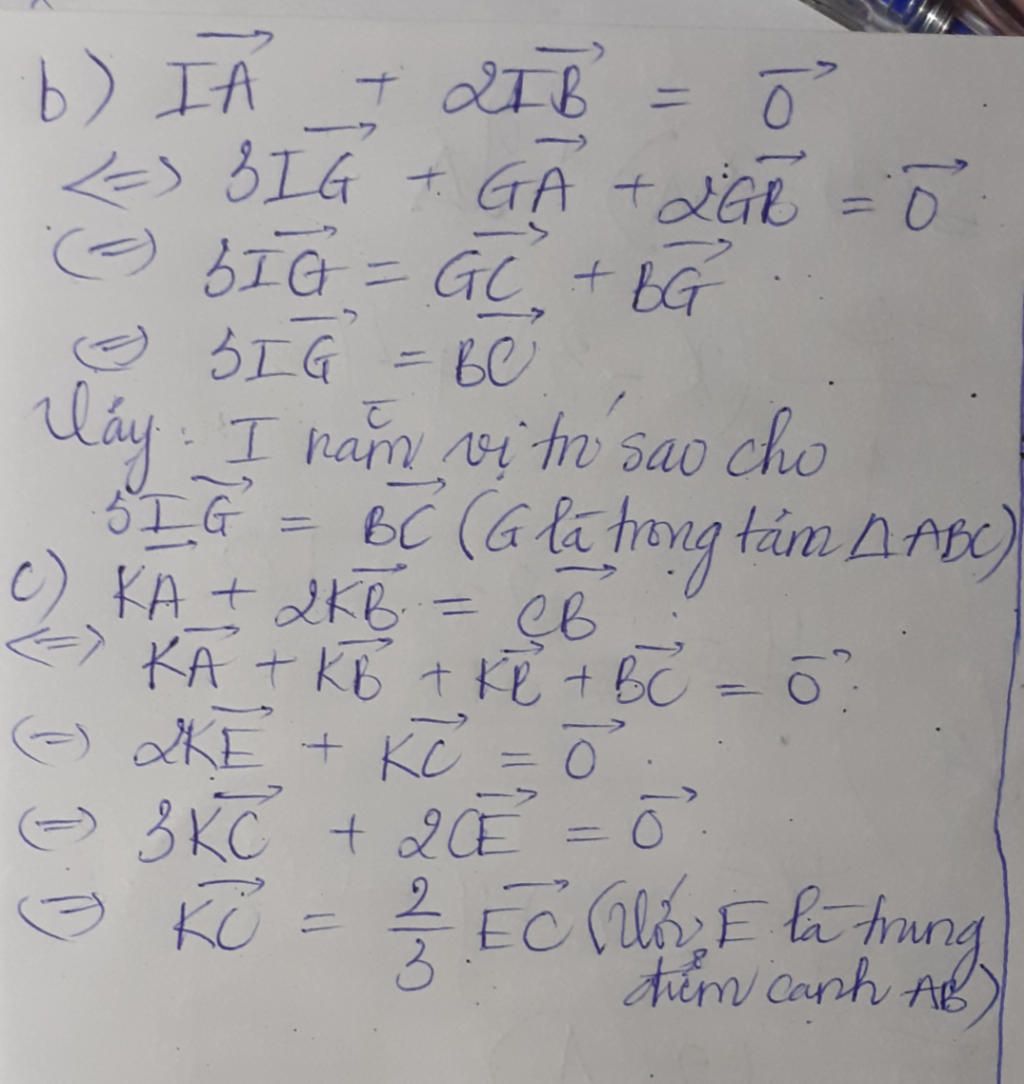 b) \overrightarrow{IA} + 2\overrightarrow{IB} = \overrightarrow{0}
<=> 3\overrightarrow{IG} + \overrightarrow{GA} + 2\overrightarrow{GB} = \overrightarrow{0}
(=) 3\overrightarrow{IG} = \overrightarrow{GC} + \overrightarrow{BG}
(=) 3\overrightarrow{IG} = \overrightarrow{BC}
Vậy: I nằm vị trí sao cho
3\overrightarrow{IG} = \overrightarrow{BC} (G là trọng tâm ΔABC)
c) \overrightarrow{KA} + 2\overrightarrow{KB} = \overrightarrow{CB}
<=> \overrightarrow{KA} + \overrightarrow{KB} + \overrightarrow{KB} + \overrightarrow{BC} = \overrightarrow{0}
(=) 2\overrightarrow{KE} + \overrightarrow{KC} = \overrightarrow{0}
(=) 3\overrightarrow{KC} + 2\overrightarrow{CE} = \overrightarrow{0}
(=) \overrightarrow{KC} = \frac{2}{3} \overrightarrow{EC} (Với E là trung
điểm cạnh AB)